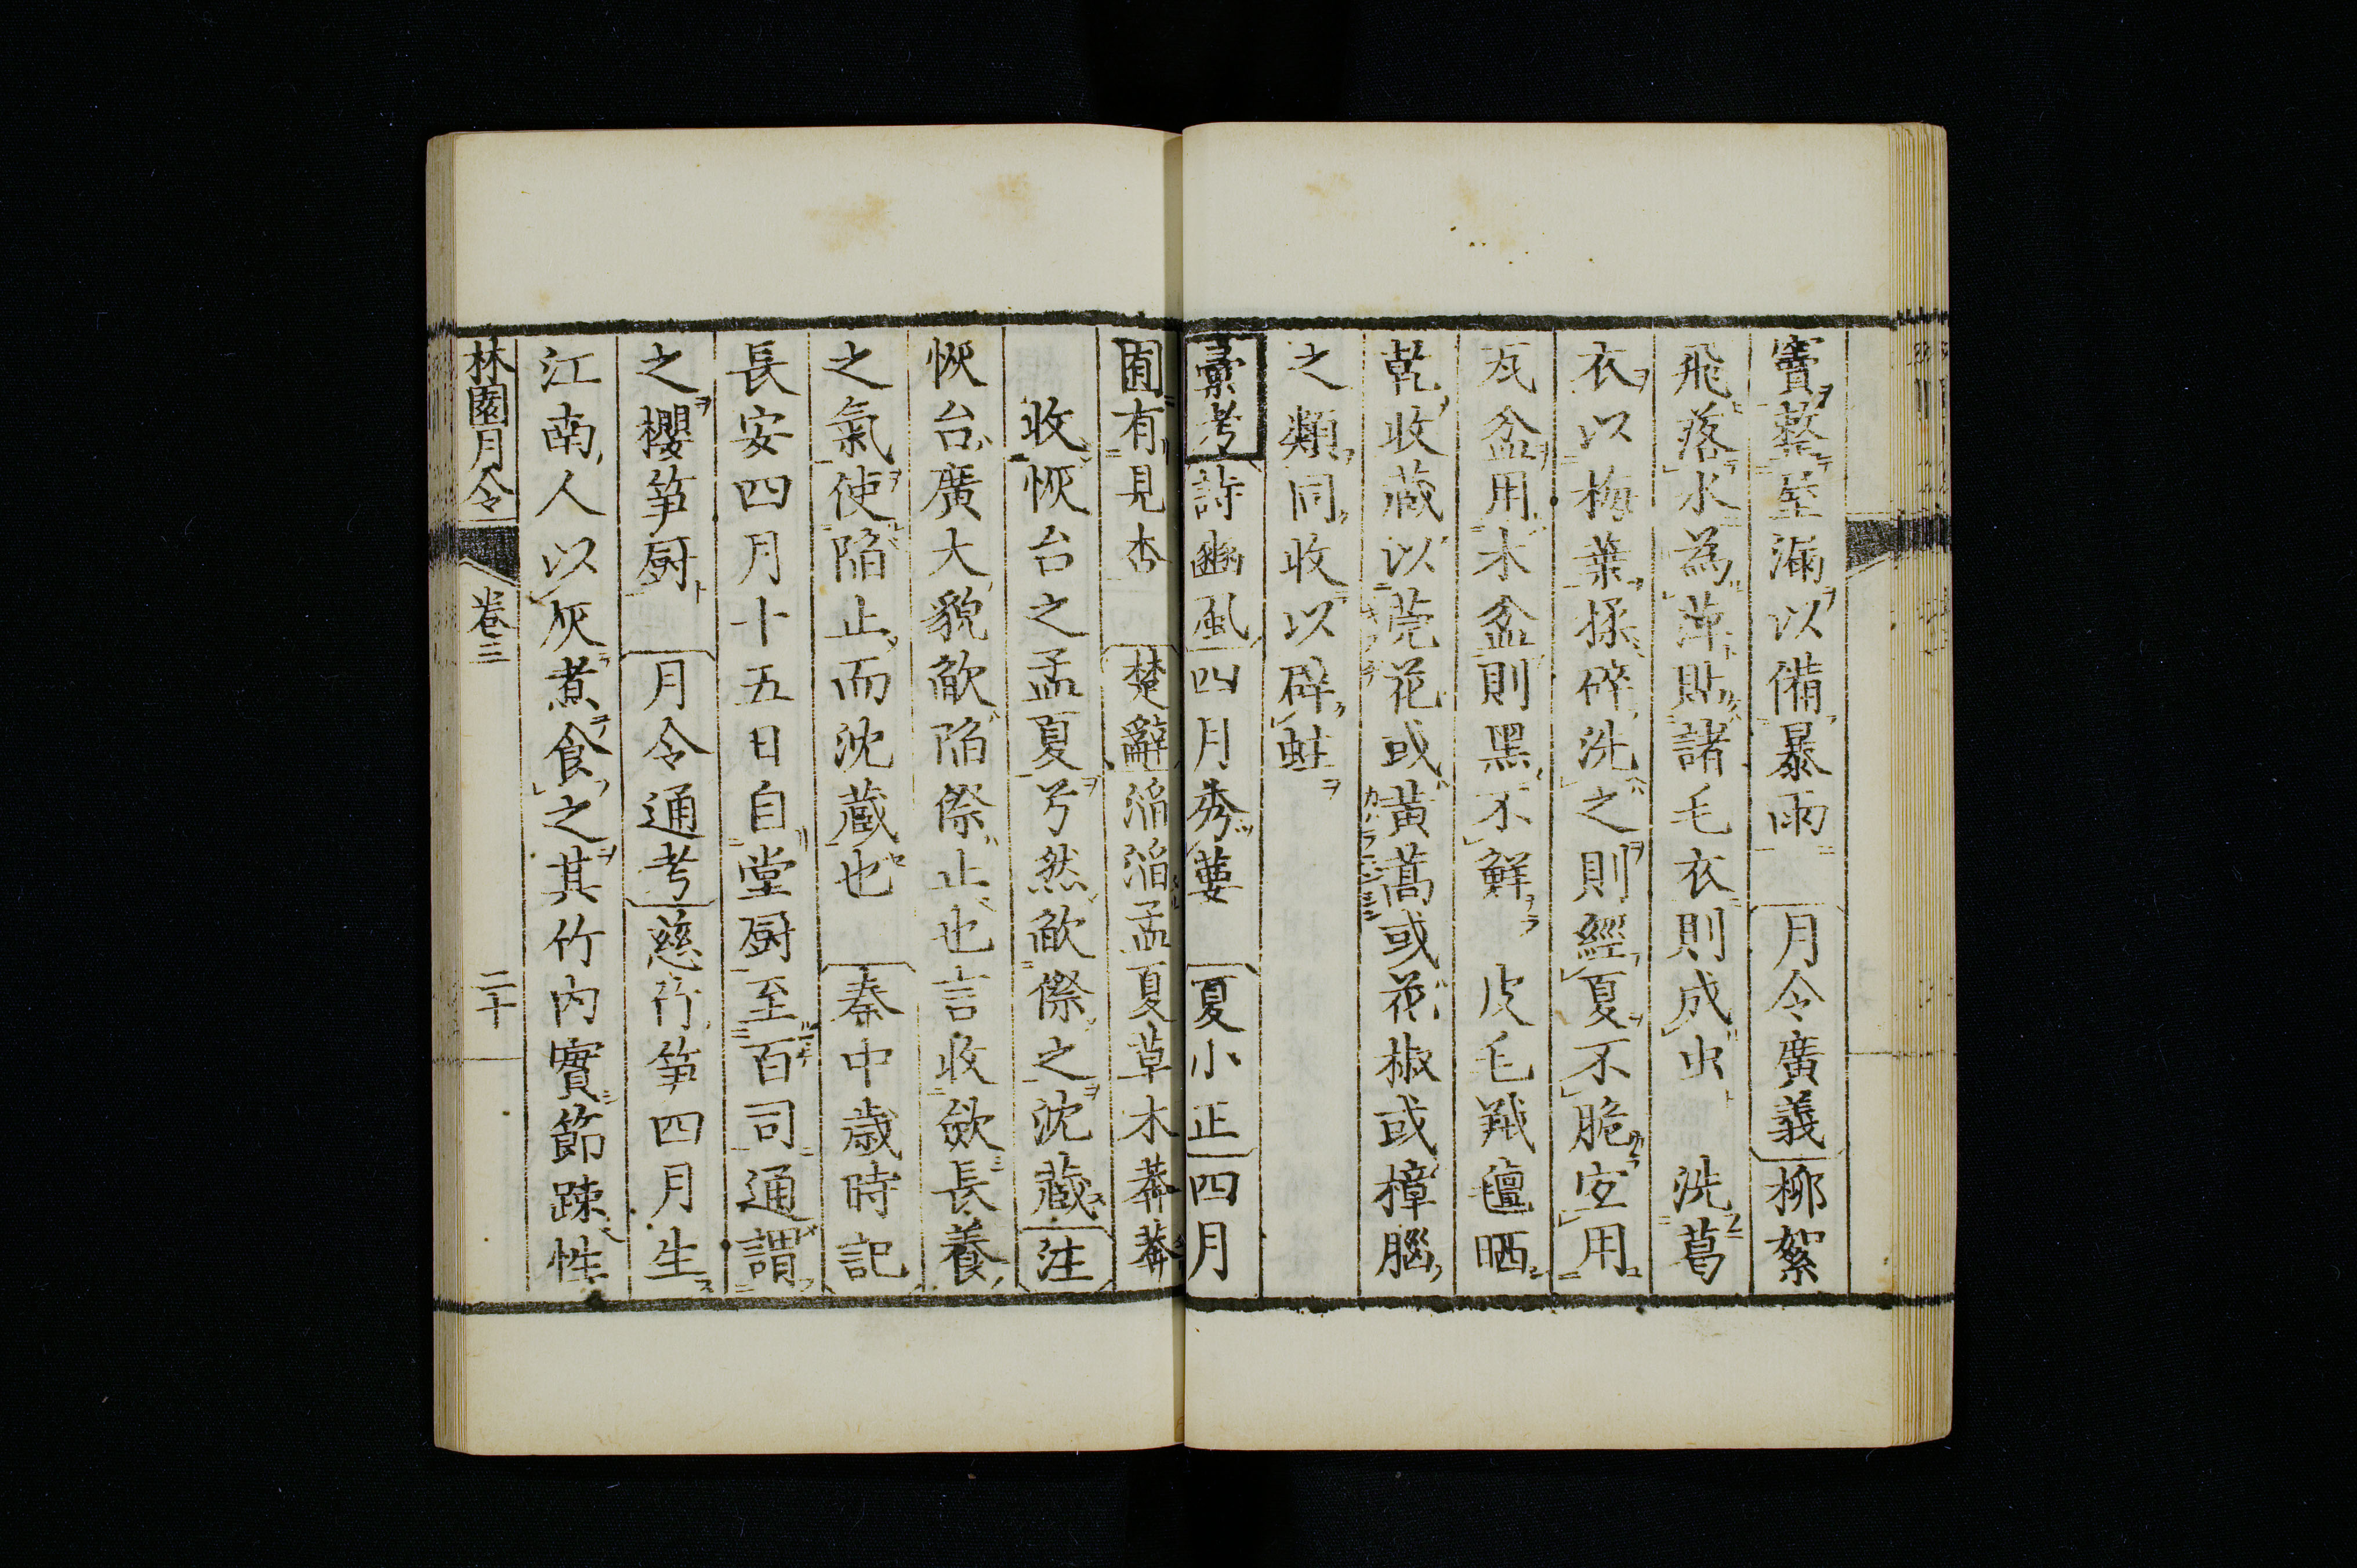 竇整屋漏以備暴雨 月令廣義柳絮
飛落水為萍貼諸毛衣則成虫 洗葛
衣以梅葉揉碎洗之則經夏不脆宜用
瓦盆用木盆則黑不鮮 皮毛羢氊晒
乾收藏以莞花或黃蒿或花椒或樟腦
之類同收以辟蛀
彙考詩豳風四月秀葽 夏小正四月
囿有見杏 楚辭滔滔孟夏草木莽莽
收恢台之孟夏兮然欿傺之沈藏注
恢台廣大貌欿陷傺止也言收斂長養
之氣使陷止而沈藏也 秦中歲時記
長安四月十五日自堂厨至百司通謂
之櫻笋厨 月令通考慈竹笋四月生
江南人以灰煮食之其竹內實節疎性
林園月令 卷三 二十